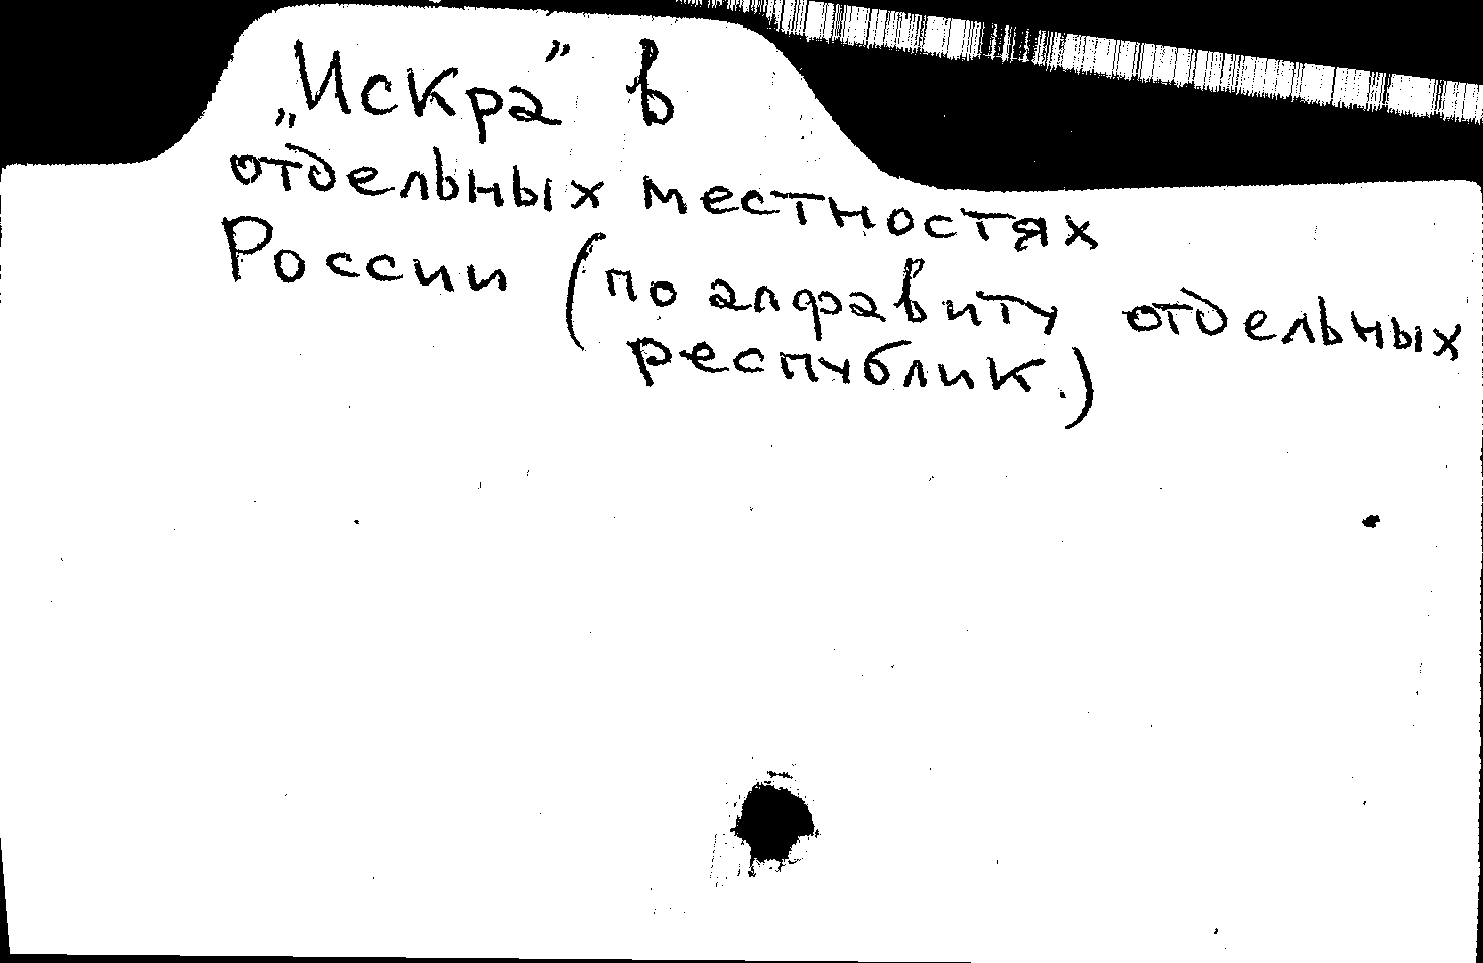 „Искра” в
отдельных местностях
России (по алфавиту отдельных
республик.)